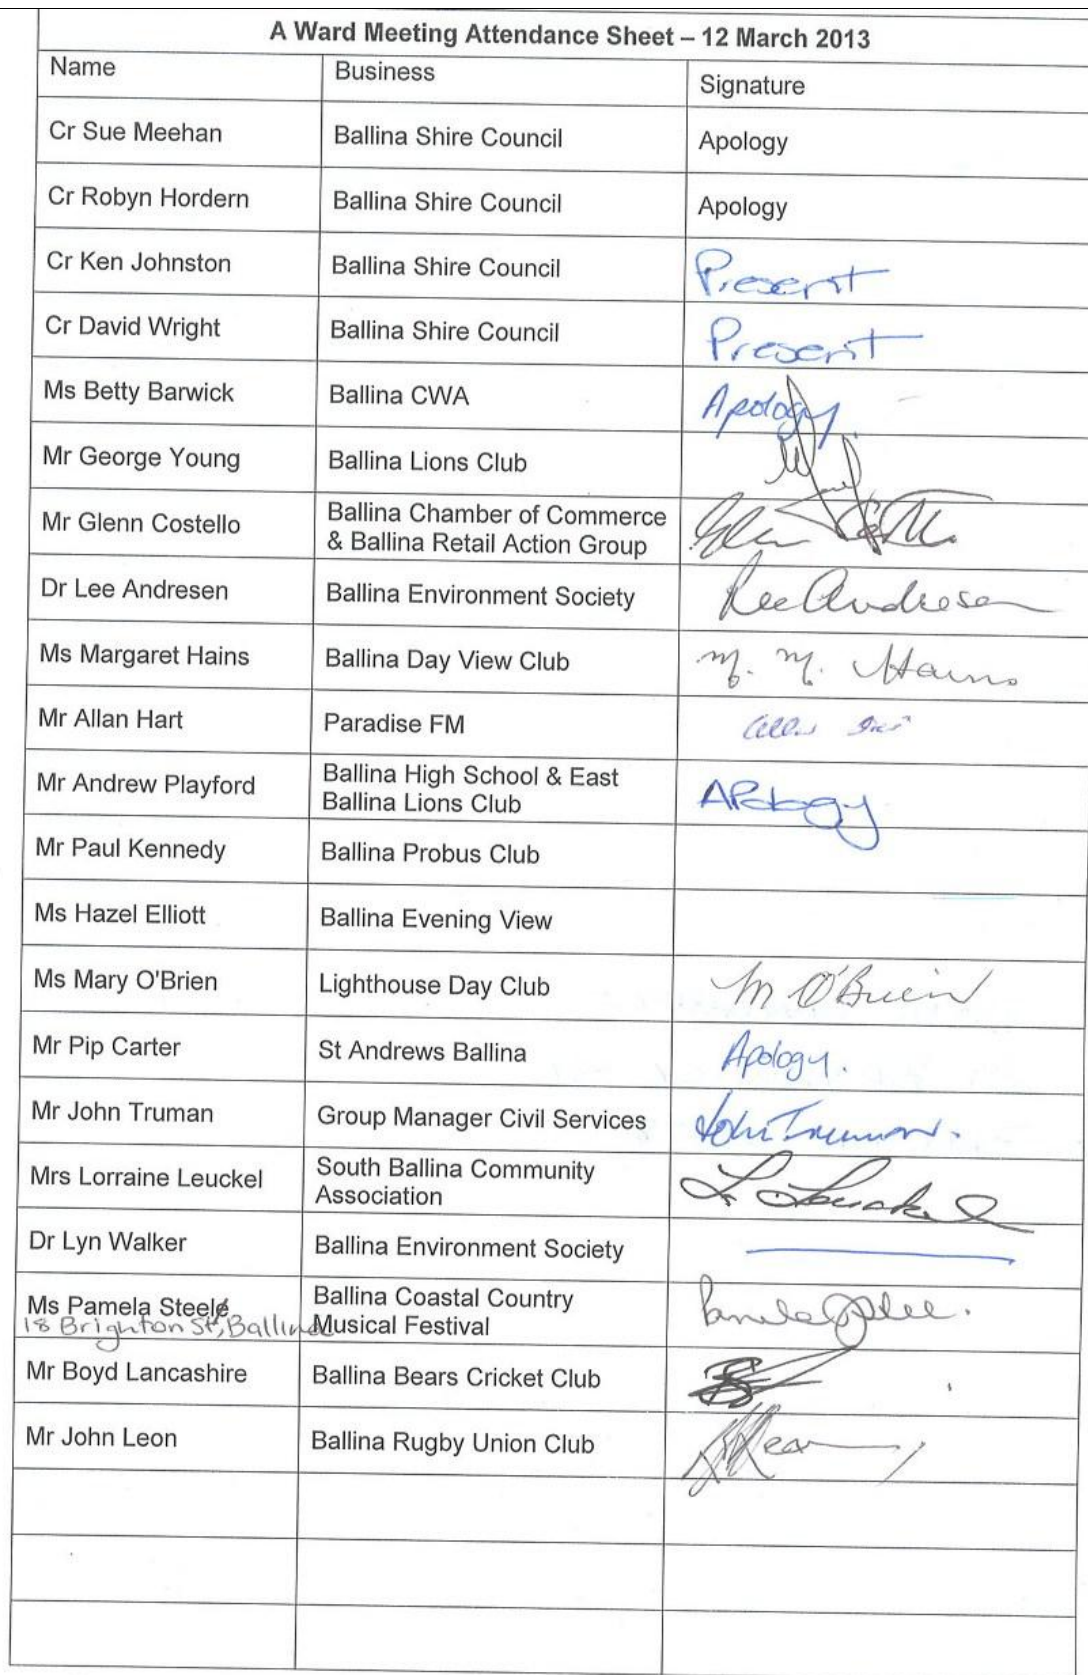 A Ward Meeting Attendance Sheet – 12 March 2013
Name Business Signature
Cr Sue Meehan Ballina Shire Council Apology
Cr Robyn Hordern Ballina Shire Council Apology
Cr Ken Johnston Ballina Shire Council Present
Cr David Wright Ballina Shire Council Present
Ms Betty Barwick Ballina CWA Apology
Mr George Young Ballina Lions Club
Mr Glenn Costello Ballina Chamber of Commerce
& Ballina Retail Action Group
Dr Lee Andresen Ballina Environment Society Lee Andresen
Ms Margaret Hains Ballina Day View Club M. M. Hains
Mr Allan Hart Paradise FM
Mr Andrew Playford Ballina High School & East
Ballina Lions Club APology
Mr Paul Kennedy Ballina Probus Club
Ms Hazel Elliott Ballina Evening View
Ms Mary O'Brien Lighthouse Day Club M O'Brien
Mr Pip Carter St Andrews Ballina Apology.
Mr John Truman Group Manager Civil Services John Truman.
Mrs Lorraine Leuckel South Ballina Community
Association L Leuckel
Dr Lyn Walker Ballina Environment Society
Ms Pamela Steele Ballina Coastal Country
18 Brighton St, Ballina Musical Festival
Mr Boyd Lancashire Ballina Bears Cricket Club
Mr John Leon Ballina Rugby Union Club